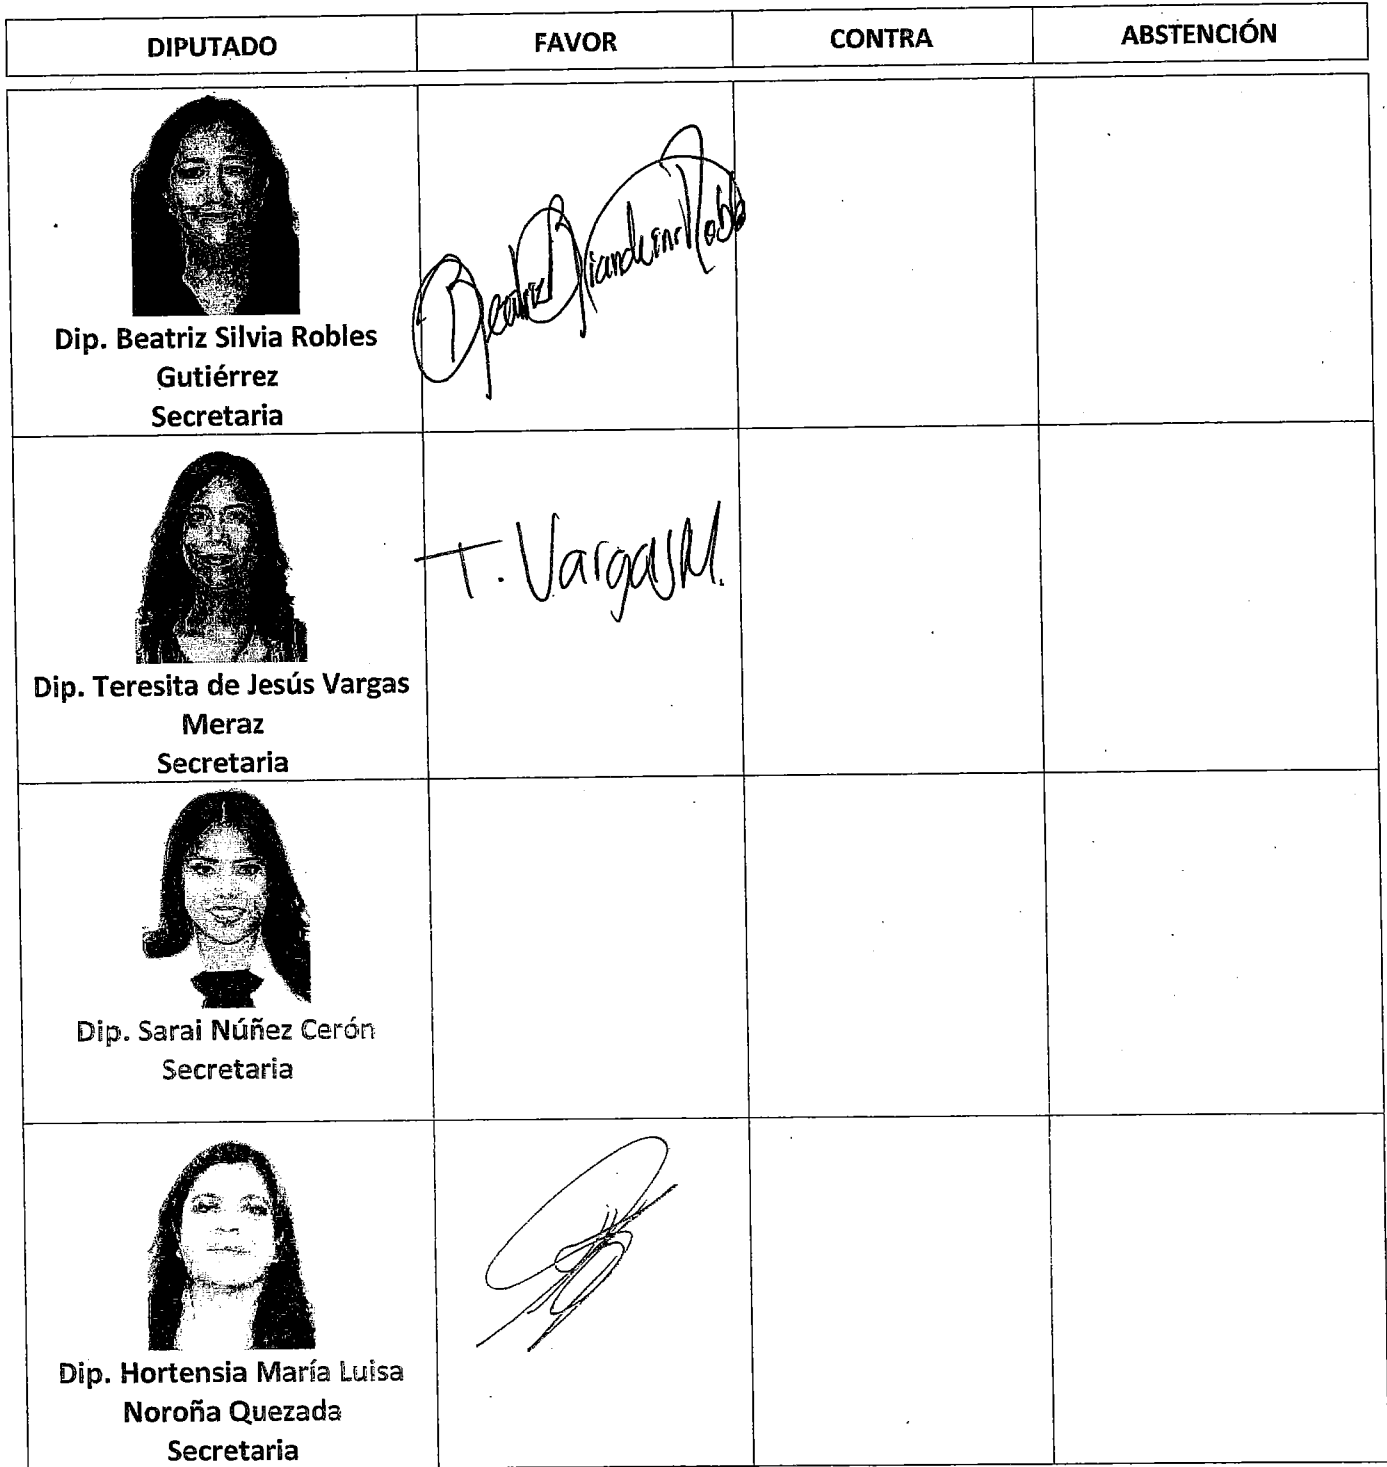 DIPUTADO FAVOR CONTRA ABSTENCIÓN
Dip. Beatriz Silvia Robles
Gutiérrez
Secretaria
Beatriz
T. Vargas M.
Dip. Teresita de Jesús Vargas
Meraz
Secretaria
Dip. Sarai Núñez Cerón
Secretaria
Dip. Hortensia María Luisa
Noroña Quezada
Secretaria